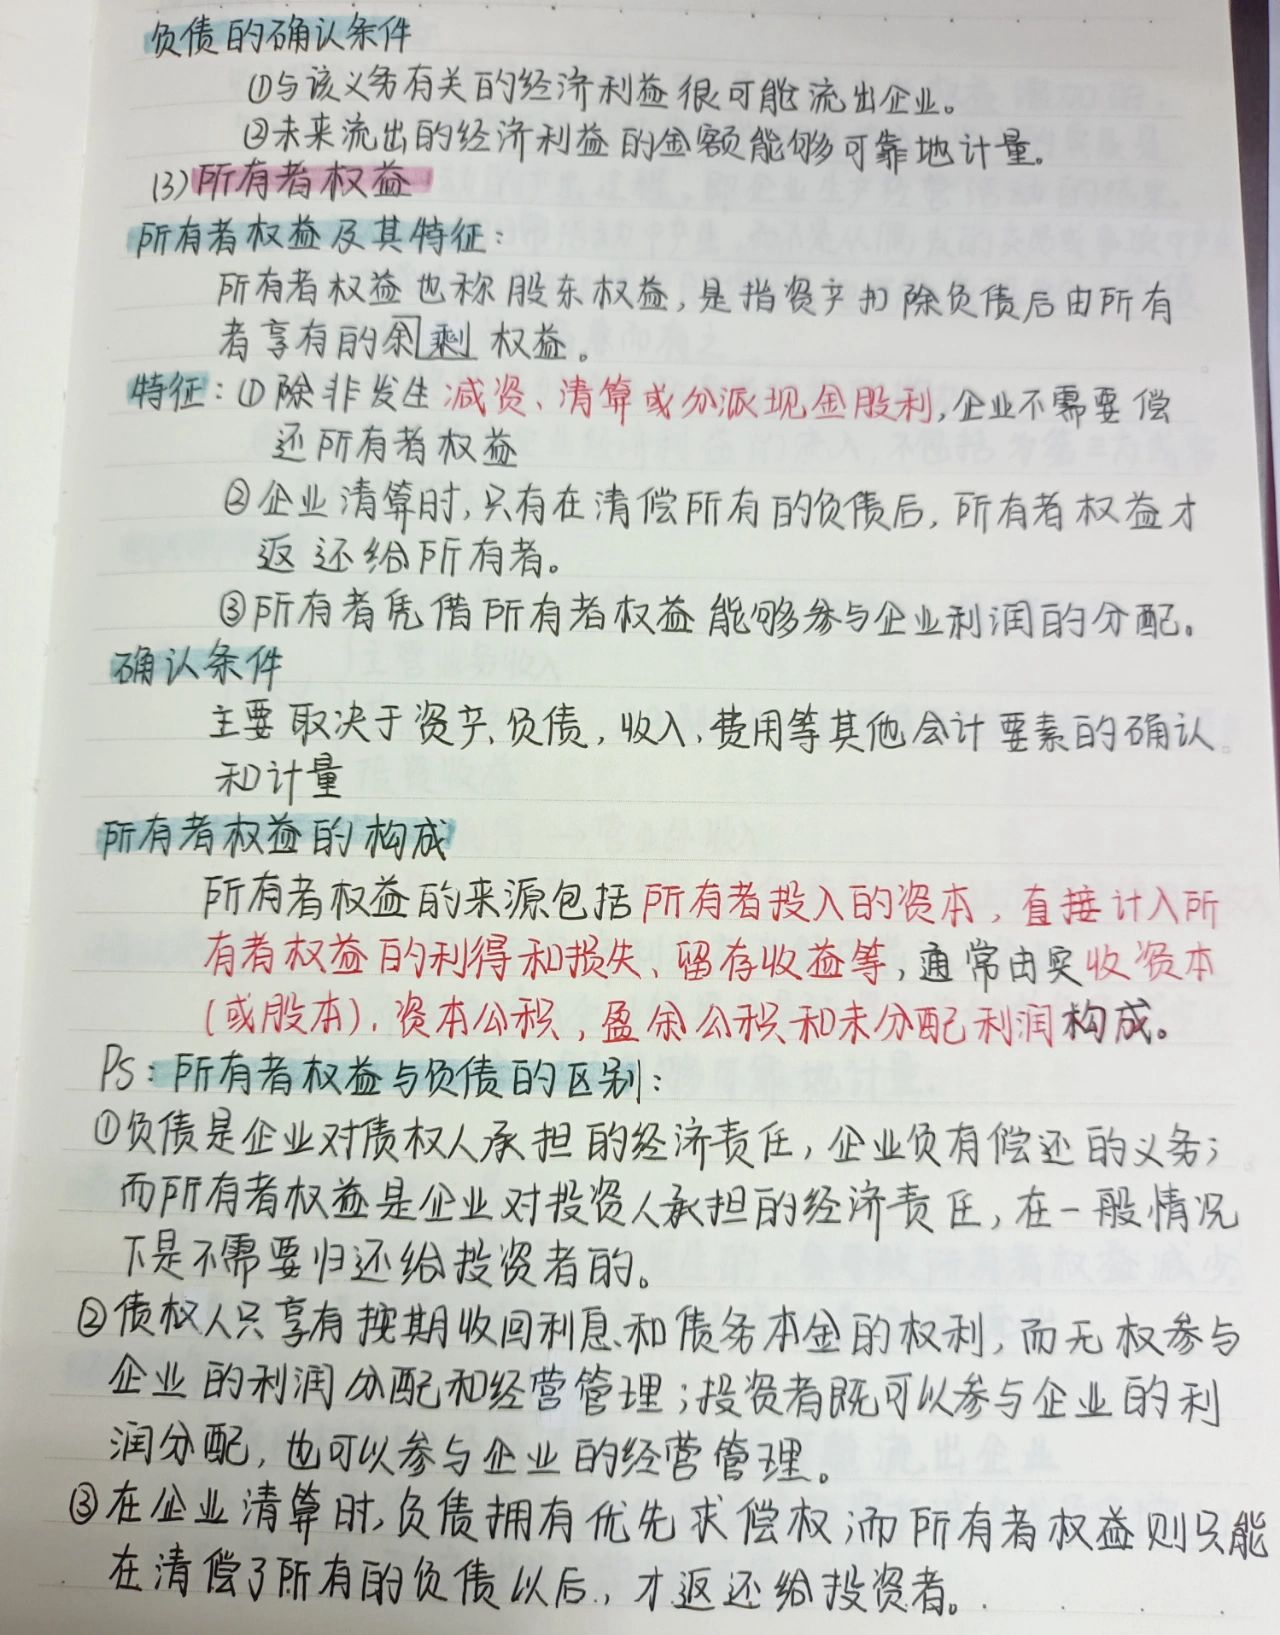 负债的确认条件
①与该义务有关的经济利益很可能流出企业。
②未来流出的经济利益的金额能够可靠地计量。
(3)所有者权益
所有者权益及其特征:
所有者权益也称股东权益,是指资产扣除负债后由所有
者享有的余剩权益。
特征:①除非发生减资、清算或分派现金股利,企业不需要偿
还所有者权益
②企业清算时,只有在清偿所有的负债后,所有者权益才
返还给所有者。
③所有者凭借所有者权益能够参与企业利润的分配。
确认条件
主要取决于资产、负债,收入、费用等其他会计要素的确认
和计量
所有者权益的构成
所有者权益的来源包括所有者投入的资本,直接计入所
有者权益的利得和损失、留存收益等,通常由实收资本
(或股本)、资本公积,盈余公积和未分配利润构成。
PS:所有者权益与负债的区别:
①负债是企业对债权人承担的经济责任,企业负有偿还的义务;
而所有者权益是企业对投资人承担的经济责任,在一般情况
下是不需要归还给投资者的。
②债权人只享有按期收回利息和债务本金的权利,而无权参与
企业的利润分配和经营管理;投资者既可以参与企业的利
润分配,也可以参与企业的经营管理。
③在企业清算时,负债拥有优先求偿权;而所有者权益则只能
在清偿了所有的负债以后,才返还给投资者。